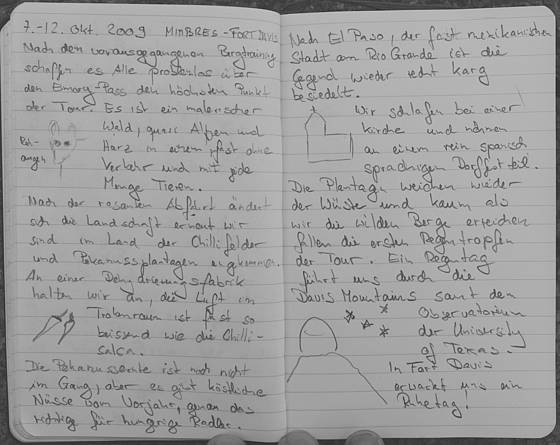 7.-12. Okt. 2009 MIMBRES - FORT DAVIS
Nach den vorausgegangenen Bergtraining
schaffen es Alle problemlos über
den Emory-Pass den höchsten Punkt
der Tour. Es ist ein malerischer
Wald, quasi Alpen und
Harz in einem, fast ohne
Verkehr und mit jede
Menge Tieren.
Nach der rasanten Abfahrt ändert
sich die Landschaft erneut wir
sind im Land der Chillifelder
und Pekanussplantagen angekommen.
An einer Dehydrierungsfabrik
halten wir an, die Luft im
Trockenraum ist fast so
beissend wie die Chilli-
salsa.
Die Pekanussernte ist noch nicht
im Gang, aber es gibt köstliche
Nüsse vom Vorjahr, genau das
richtig für hungrige Radler.
Nach El Paso, der fast mexikanischen
Stadt am Rio Grande ist die
Gegend wieder recht karg
besiedelt.
Wir schlafen bei einer
Kirche und nehmen
an einem rein spanisch
sprachigen Dorffest teil.
Die Plantagen weichen wieder
der Wüste und kaum als
wir die wilden Berge erreichen
fallen die ersten Regentropfen
der Tour. Ein Regentag
führt uns durch die
Davis Mountains samt dem
Observatorium
der University
of Texas.
In Fort Davis
erwartet uns ein
Ruhetag!